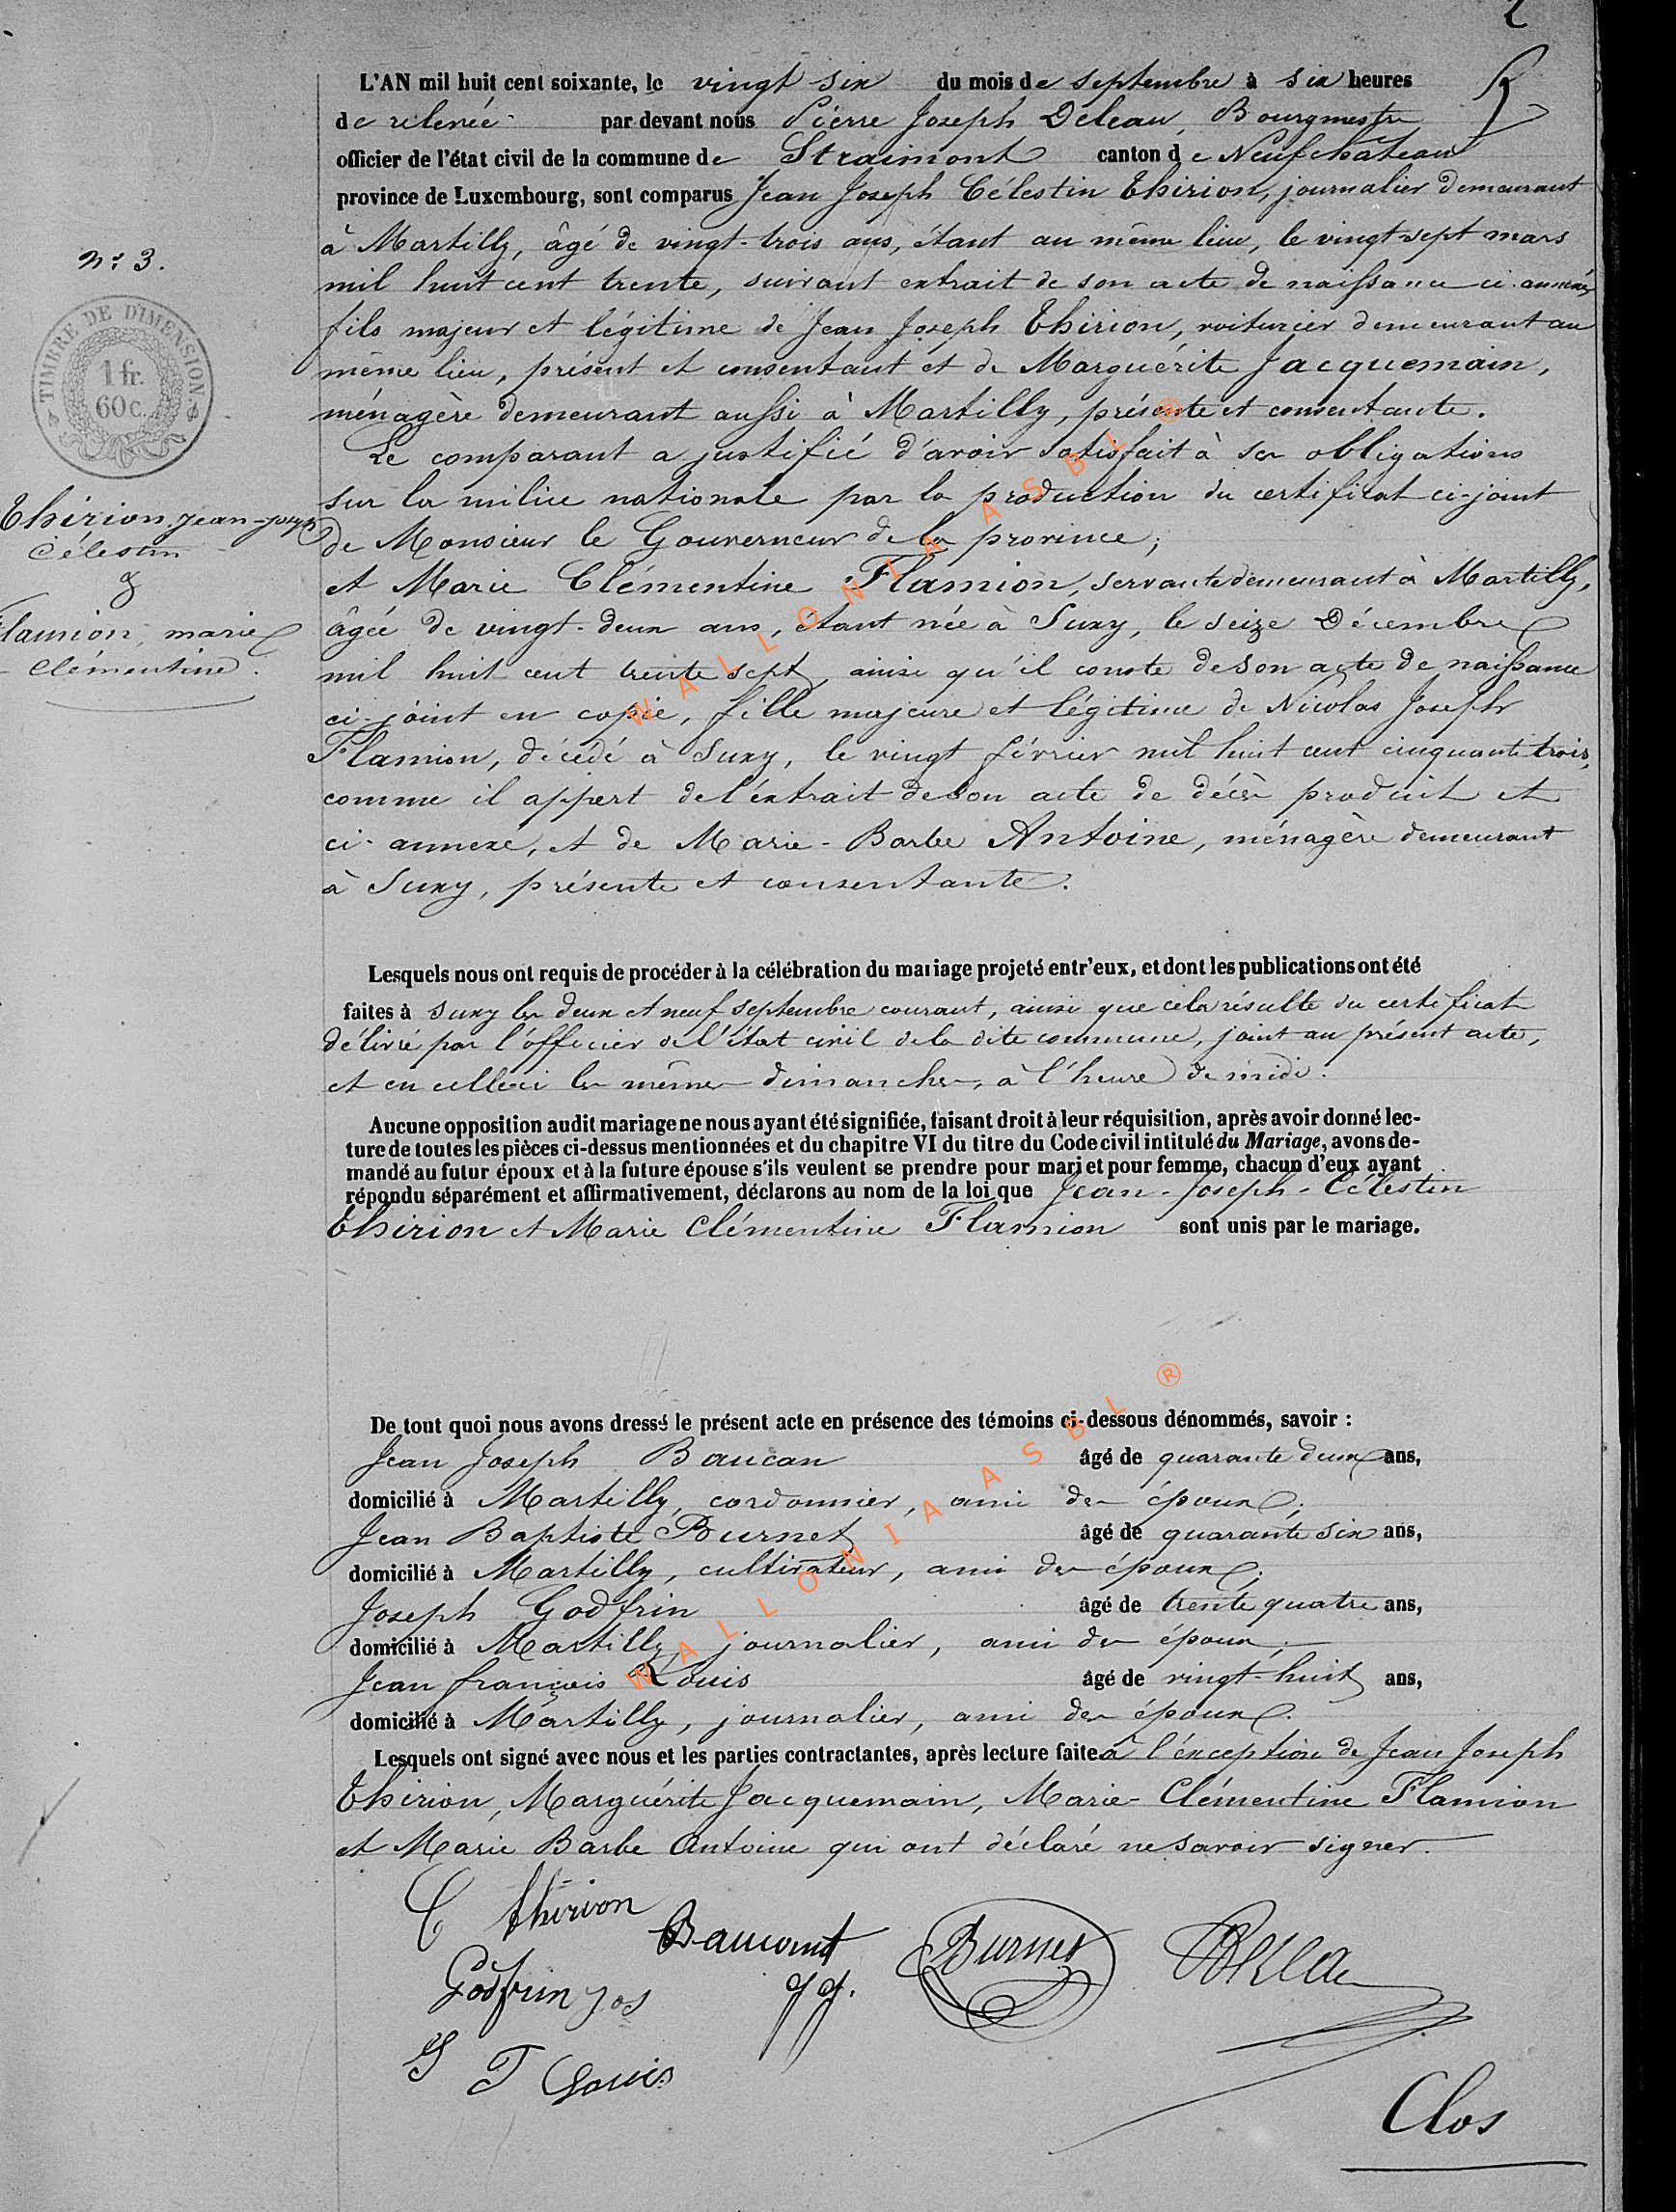 2
L'AN mil huit cent soixante, le vingt six du mois de septembre à six heures
de relevée par devant nous Pierre Joseph Deleau, Bourgmestre
officier de l'état civil de la commune de Straimont canton de Neufchateau
province de Luxembourg, sont comparus Jean Joseph Célestin Thirion, journalier demeurant
à Martilly, âgé de vingt-trois ans, étant au même lieu, le vingt sept mars
n° 3.
mil huit cent trente, suivant extrait de son acte de naissance ci-annexé
fils majeur et légitime de Jean Joseph Thirion, voiturier demeurant au
même lieu, présent et consentant et de Marguérite Jacquemain,
TIMBRE DE DIMENSION.
1 fr.
60 c.
ménagère demeurant aussi à Martilly, présente et consentante.
Le comparant a justifié d'avoir satisfait à ses obligations
sur la milice nationale par la production du certificat ci-joint
Thirion, jean-joseph
Célestin
&
Flamion, marie
Clémentine.
de Monsieur le Gouverneur de la province;
et Marie Clémentine Flamion, servante demeurant à Martilly,
âgée de vingt-deux ans, étant née à Suxy, le seize Décembre
mil huit cent trente sept, ainsi qu'il conste de son acte de naissance
ci-joint en copie, fille majeure et légitime de Nicolas Joseph
Flamion, décédé à Suxy, le vingt février mil huit cent cinquante trois,
comme il appert de l'éxtrait de son acte de décès produit et
ci-annexé, et de Marie-Barbe Antoine, ménagère demeurant
à Suxy, présente et consentante.
Lesquels nous ont requis de procéder à la célébration du mariage projeté entr'eux, et dont les publications ont été
faites à Suxy les deux et neuf septembre courant, ainsi que cela résulte du certificat
délivré par l'officier de l'état civil de la dite commune, joint au présent acte,
et en celle-ci les mêmes dimanches, à l'heure de midi.
Aucune opposition audit mariage ne nous ayant été signifiée, faisant droit à leur réquisition, après avoir donné lec-
ture de toutes les pièces ci-dessus mentionnées et du chapitre VI du titre du Code civil intitulé du Mariage, avons de-
mandé au futur époux et à la future épouse s'ils veulent se prendre pour mari et pour femme, chacun d'eux ayant
répondu séparément et affirmativement, déclarons au nom de la loi que Jean-Joseph-Célestin
Thirion et Marie Clémentine Flamion sont unis par le mariage.
De tout quoi nous avons dressé le présent acte en présence des témoins ci-dessous dénommés, savoir :
Jean Joseph Baucan âgé de quarante deux ans,
domicilié à Martilly, cordonnier, ami des époux;
Jean Baptiste Burnet âgé de quarante six ans,
domicilié à Martilly, cultivateur, ami des époux;
Joseph Godfrin âgé de trente quatre ans,
domicilié à Martilly, journalier, ami des époux;
Jean françois Louis âgé de vingt-huit ans,
domicilié à Martilly, journalier, ami des époux.
Lesquels ont signé avec nous et les parties contractantes, après lecture faite à l'éxception de Jean Joseph
Thirion, Marguérite Jacquemain, Marie-Clémentine Flamion
et Marie Barbe Antoine qui ont déclaré ne savoir signer.
C thirion
Baucant
JJ.
Burnet
Godfrin Jos
J F Louis
Clos
WALLONIA ASBL ®
WALLONIA ASBL ®